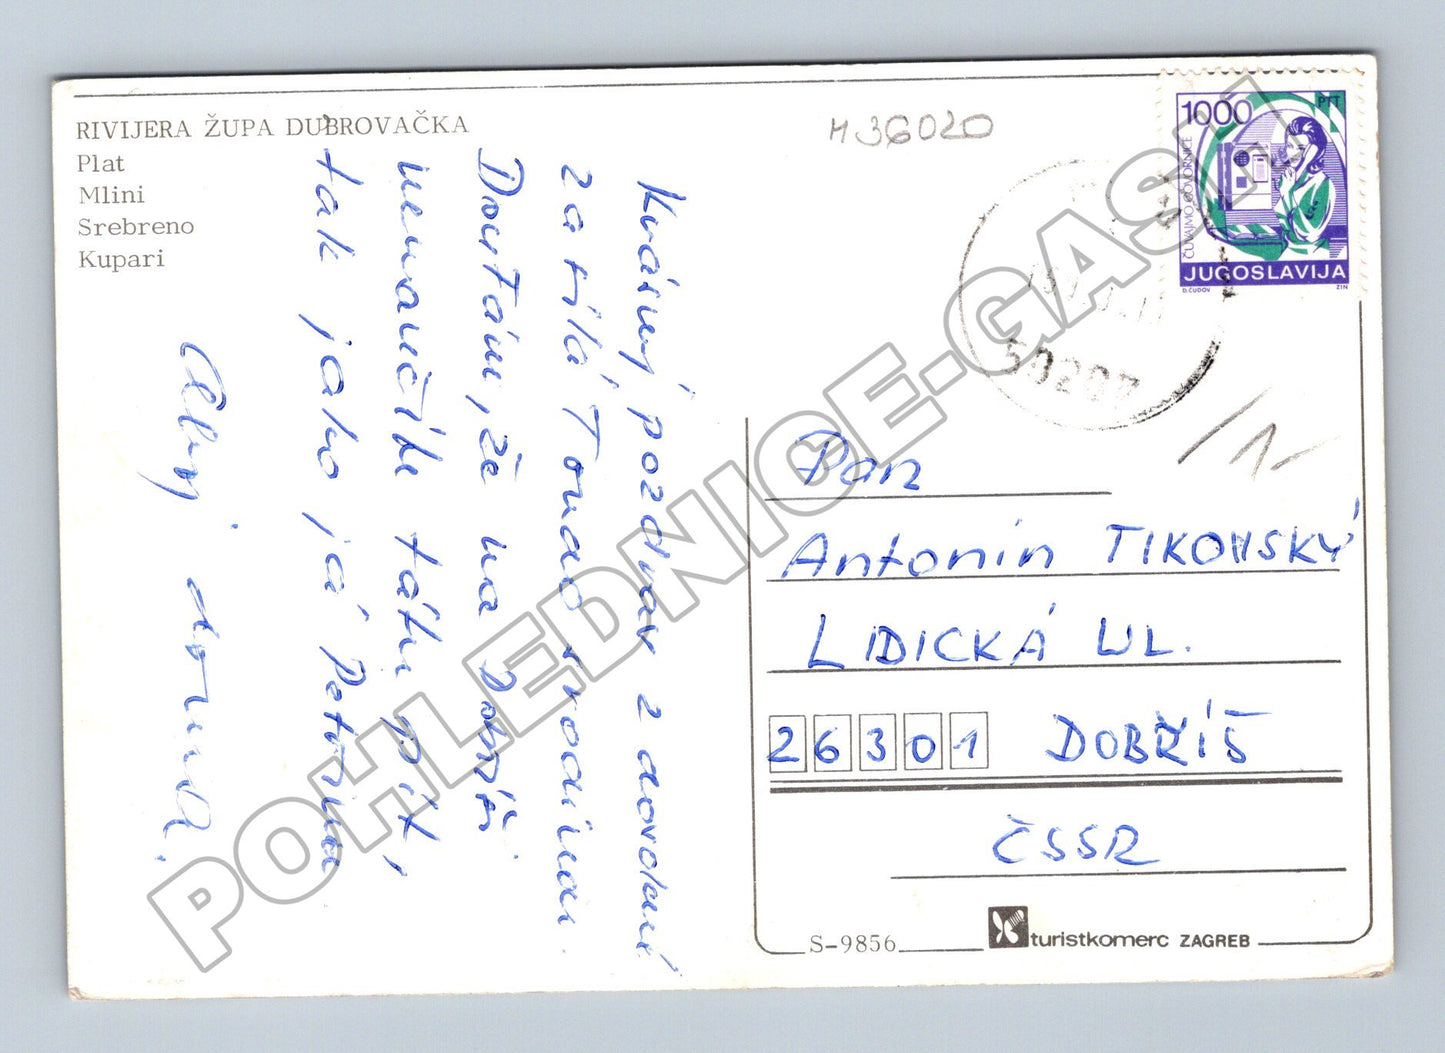 RIVIJERA ŽUPA DUBROVAČKA
Plat
Mlini
Srebreno
Kupari
M36020
1000
PTT
ČUVAJMO GOVORNICE
JUGOSLAVIJA
D.ČUDOV ZIN
50207
Krásný pozdrav z dovolené
zasílá Tonda s rodinou.
Doufám, že na Dobříši
nemaučíte táhu pít,
tak jako já Petrova
Ahoj
Pan
Antonín TIKOVSKÝ
LIDICKÁ UL.
26301 DOBŘÍŠ
ČSSR
S-9856
turistkomerc ZAGREB
POHLEDNICE-GASH